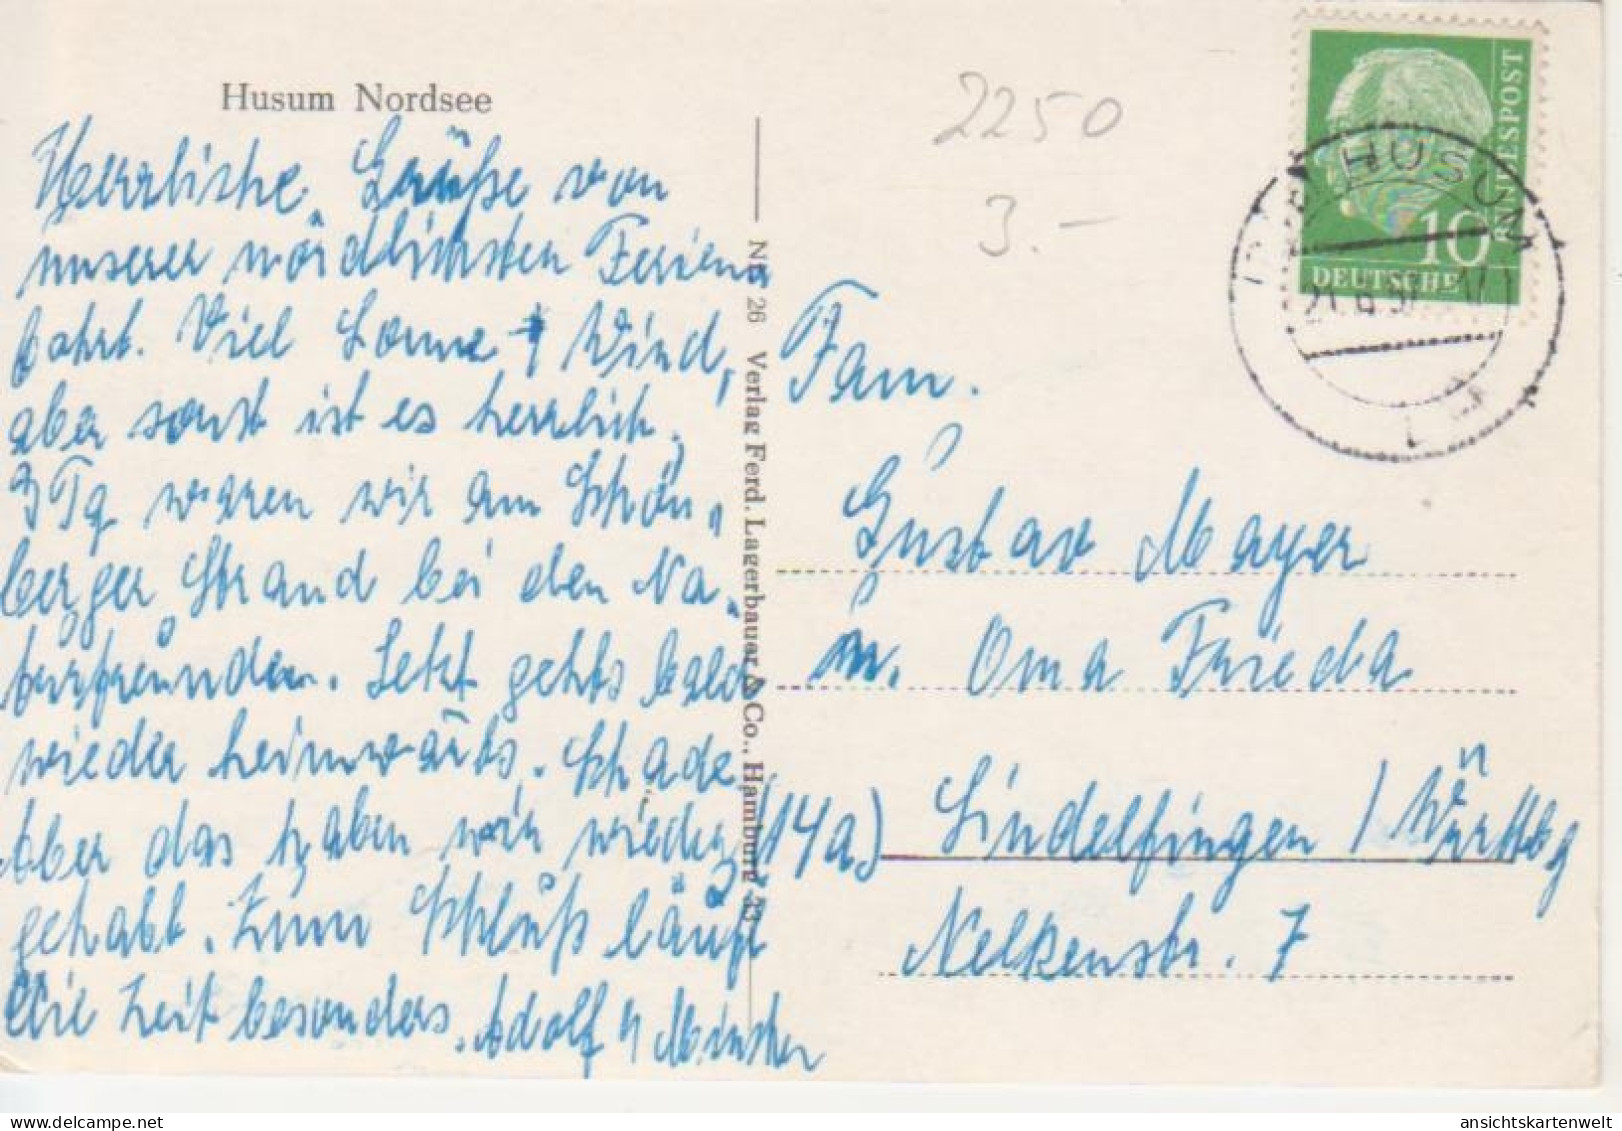 Husum Nordsee
Herrliche Grüße von
unserer nördlichsten Ferien
fahrt. Viel Sonne + Wind,
aber sonst ist es herrlich.
3 Tg waren wir am Schön„
berger Strand bei den Na„
turfreunden. Jetzt gehts bald
wieder heimwärts. Schade
Aber das haben wir wieder
gehabt. Zum Schluß läuft
die Zeit besonders. Adolf u
Nr. 26 Verlag Ferd. Lagerbauer & Co., Hamburg 33
2250
3.-
DEUTSCHE
BUNDESPOST
10
HUSUM
Fam.
Gustav Mayer
u. Oma Frieda
(14a) Sindelfingen / Württbg
Nelkenstr. 7
ansichtskartenwelt